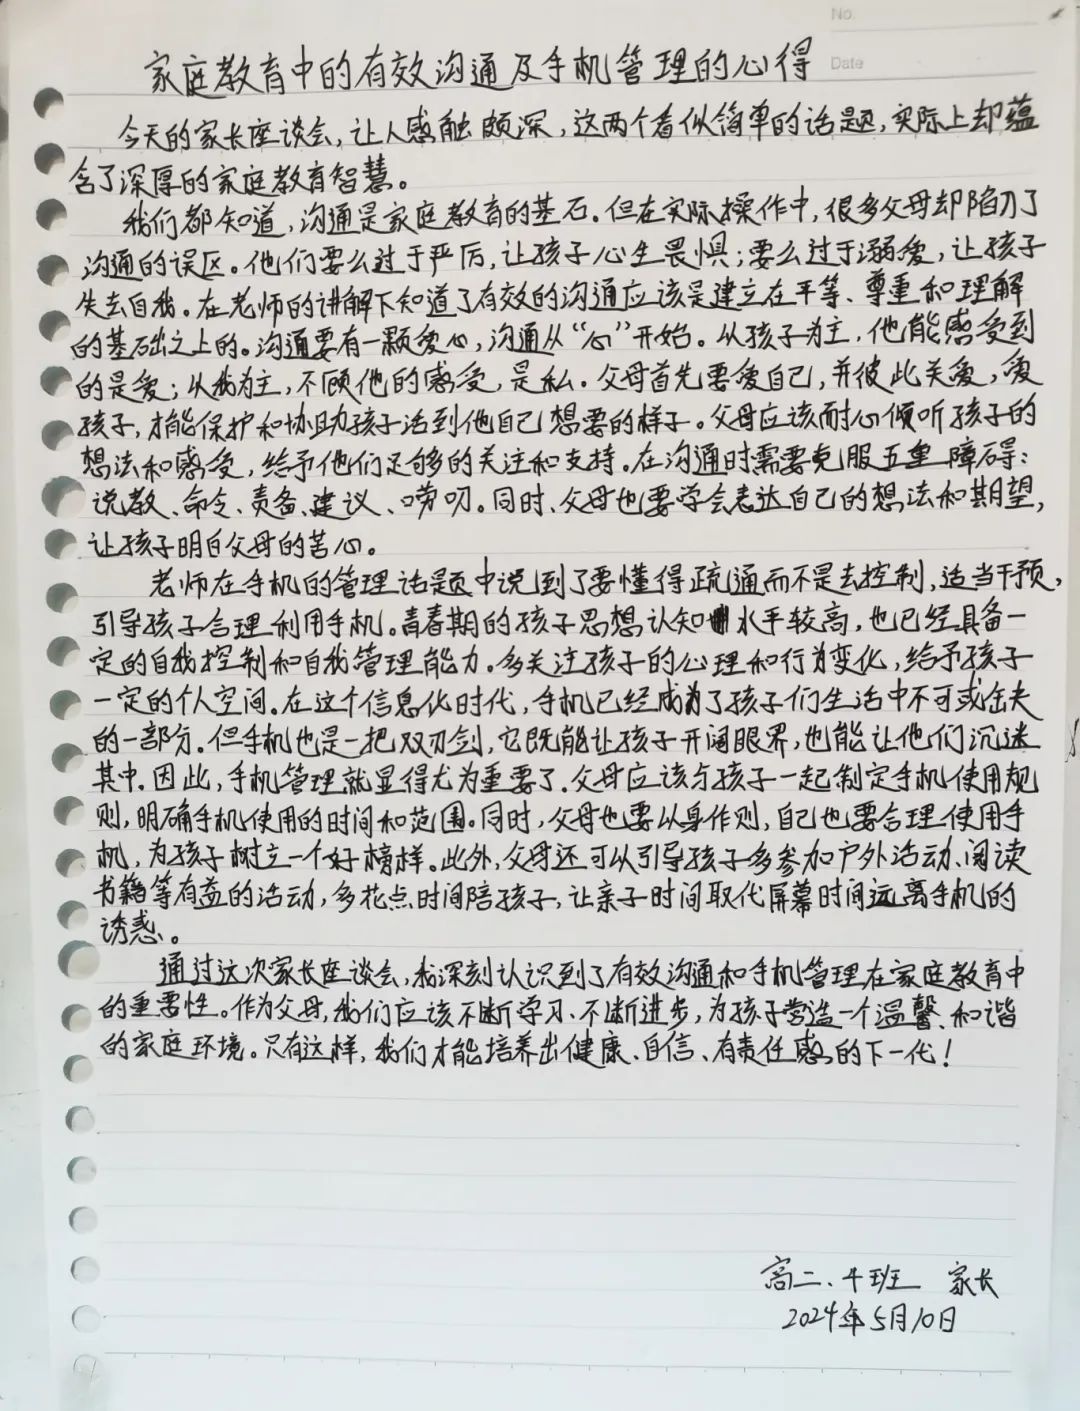 No.
Date
家庭教育中的有效沟通及手机管理的心得
今天的家长座谈会,让人感触颇深,这两个看似简单的话题,实际上却蕴
含了深厚的家庭教育智慧。
我们都知道,沟通是家庭教育的基石。但在实际操作中,很多父母却陷刀了
沟通的误区。他们要么过于严厉,让孩子心生畏惧;要么过于溺爱,让孩子
失去自我。在老师的讲解下知道了有效的沟通应该是建立在平等、尊重和理解
的基础之上的。沟通要有一颗爱心,沟通从“心”开始。从孩子为主,他能感受到
的是爱;从我为主,不顾他的感受,是私。父母首先要爱自己,并彼此关爱,爱
孩子,才能保护和协助孩子活到他自己想要的样子。父母应该耐心倾听孩子的
想法和感受,给予他们足够多的关注和支持。在沟通时需要克服五重障碍:
说教、命令、责备、建议、唠叨。同时、父母也要学会表达自己的想法和期望,
让孩子明白父母的苦心。
老师在手机的管理话题中说到了要懂得疏通而不是去控制,适当干预,
引导孩子合理利用手机。青春期的孩子思想认知水平较高,也已经具备一
定的自我控制和自我管理能力。多关注孩子的心理和行为变化,给予孩子
一定的个人空间。在这个信息化时代,手机已经成为了孩子们生活中不可或缺失
的一部分。但手机也是一把双刃剑,它既能让孩子开阔眼界,也能让他们沉迷
其中。因此,手机管理就显得尤为重要了。父母应该与孩子一起制定手机使用规
则,明确手机使用的时间和范围。同时,父母也要以身作则,自己也要合理使用手
机,为孩子树立一个好榜样。此外,父母还可以引导孩子多参加户外活动、阅读
书籍等有益的活动,多花点时间陪孩子,让亲子时间取代屏幕时间远离手机的
诱惑、。
通过这次家长座谈会,我深刻认识到了有效沟通和手机管理在家庭教育中
的重要性。作为父母,我们应该不断学习、不断进步,为孩子营造一个温馨、和谐
的家庭环境。只有这样,我们才能培养出健康、自信、有责任感的下一代!
高二、4班 家长
2024年5月10日